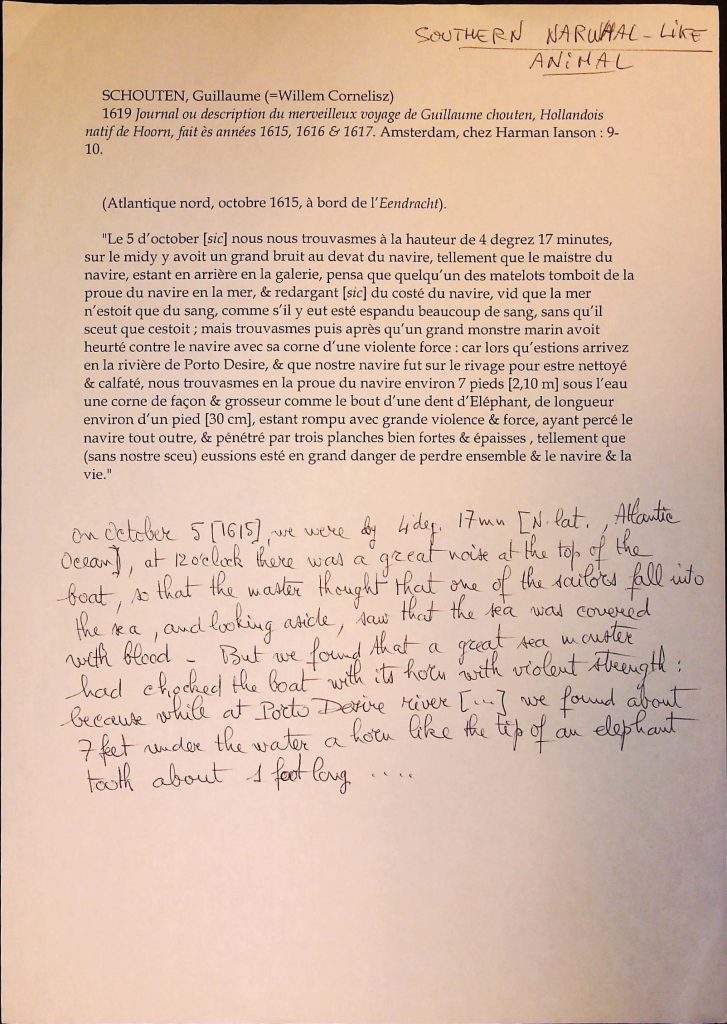 SOUTHERN NARWHAL-LIKE
ANIMAL
SCHOUTEN, Guillaume (=Willem Cornelisz)
1619 Journal ou description du merveilleux voyage de Guillaume chouten, Hollandois
natif de Hoorn, fait ès années 1615, 1616 & 1617. Amsterdam, chez Harman Ianson : 9-
10.
(Atlantique nord, octobre 1615, à bord de l'Eendracht).
"Le 5 d'october [sic] nous nous trouvasmes à la hauteur de 4 degrez 17 minutes,
sur le midy y avoit un grand bruit au devat du navire, tellement que le maistre du
navire, estant en arrière en la galerie, pensa que quelqu'un des matelots tomboit de la
proue du navire en la mer, & redargant [sic] du costé du navire, vid que la mer
n'estoit que du sang, comme s'il y eut esté espandu beaucoup de sang, sans qu'il
sceut que cestoit ; mais trouvasmes puis après qu'un grand monstre marin avoit
heurté contre le navire avec sa corne d'une violente force : car lors qu'estions arrivez
en la rivière de Porto Desire, & que nostre navire fut sur le rivage pour estre nettoyé
& calfaté, nous trouvasmes en la proue du navire environ 7 pieds [2,10 m] sous l'eau
une corne de façon & grosseur comme le bout d'une dent d'Eléphant, de longueur
environ d'un pied [30 cm], estant rompu avec grande violence & force, ayant percé le
navire tout outre, & pénétré par trois planches bien fortes & épaisses , tellement que
(sans nostre sceu) eussions esté en grand danger de perdre ensemble & le navire & la
vie."
on October 5 [1615], we were by 4 deg. 17 mn [N. lat., Atlantic
Ocean], at 12 o'clock there was a great noise at the top of the
boat, so that the master thought that one of the sailors fall into
the sea, and looking aside, saw that the sea was covered
with blood - But we found that a great sea monster
had chocked the boat with its horn with violent strength :
because while at Porto Desire river [...] we found about
7 feet under the water a horn like the tip of an elephant
tooth about 1 foot long ....